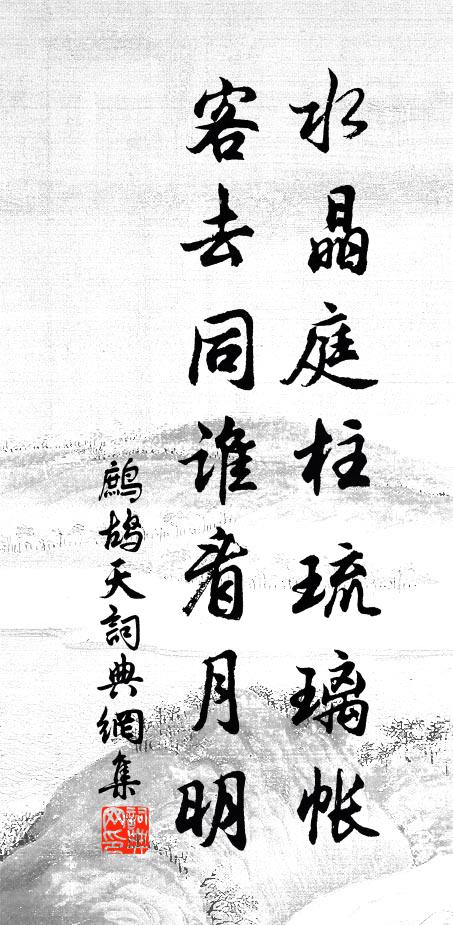 水晶庭柱琉璃帐
客去同谁看月明
鹧鸪天詞典網集